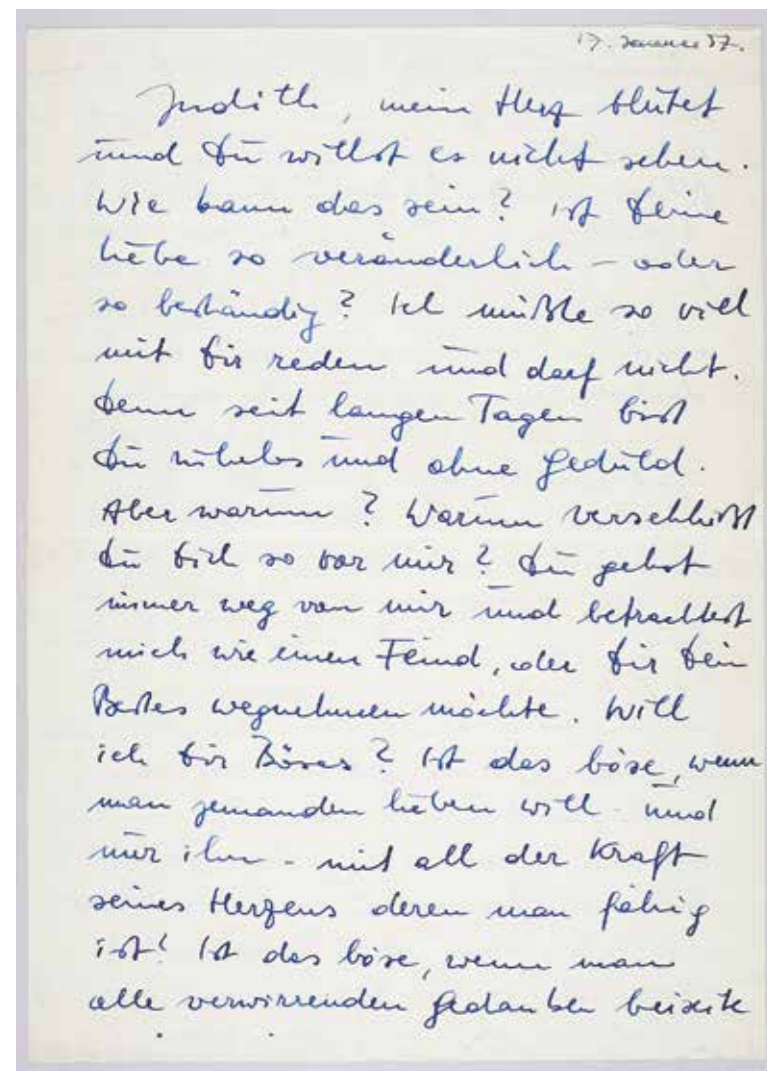 17. Januar 57.
Judith, mein Herz blütet
und Du willst es nicht sehen.
Wie kann das sein? Ist Deine
Liebe so veränderlich – oder
so beständig? Ich müßte so viel
mit Dir reden und darf nicht.
Denn seit langen Tagen bist
Du ruhelos und ohne Geduld.
Aber warum? Warum verschließt
Du Dich so vor mir? Du gehst
immer weg von mir und betrachtest
mich wie einen Feind, der Dir Dein
Bestes wegnehmen möchte. Will
ich Dir Böses? Ist das böse, wenn
man jemanden lieben will – und
nur ihn – mit all der Kraft
seines Herzens deren man fähig
ist! Ist das böse, wenn man
alle verwirrenden Gedanken beiseite